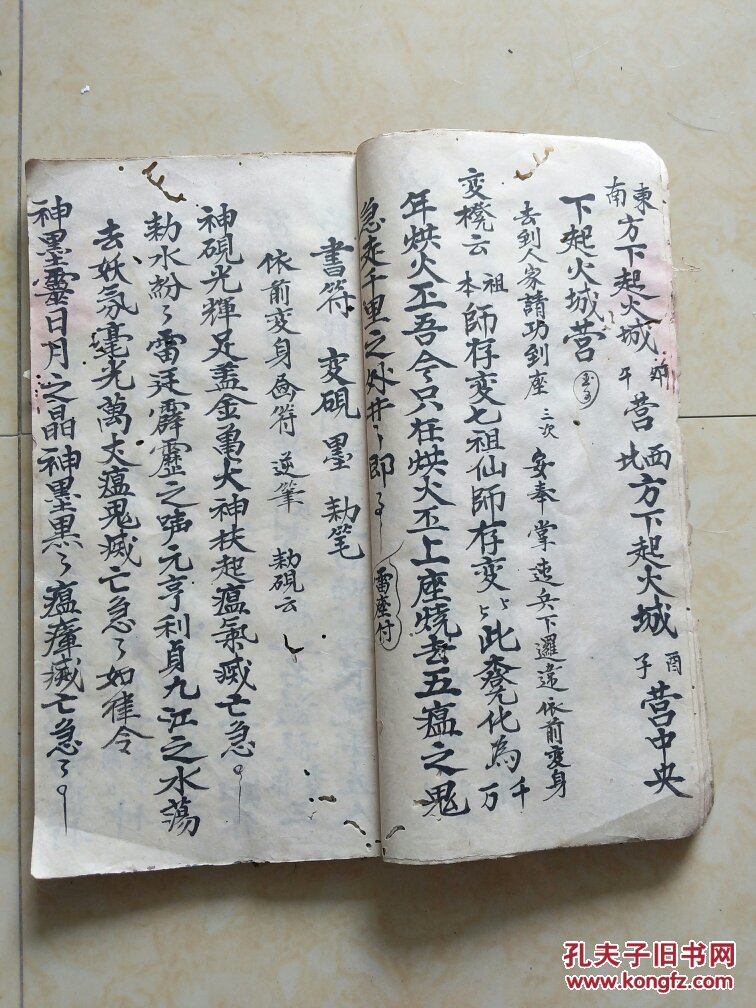 東南方下起火城卯午营西北方下起火城酉子营中央
下起火城营
去到人家請功到座三次安奉掌造兵下邏遠依前变身
变櫈云祖本師存变七祖仙師存变〻此櫈化為千万
年烘火丕吾令只在烘火丕上座燒去五瘟之鬼
急走千里之外井〻即 雷座付
書符 变硯墨 勅笔
依前变身画符逆筆 勅硯云
神硯光輝足盖金亀大神扶起瘟氣滅亡急〻
勅水紛〻雷廷霹靂之 元亨利貞九江之水蕩
去妖氛毫光萬丈瘟鬼滅亡急〻如律令
神墨靈日月之晶神墨黑〻瘟瘴滅亡急〻
孔夫子旧书网
www.kongfz.com